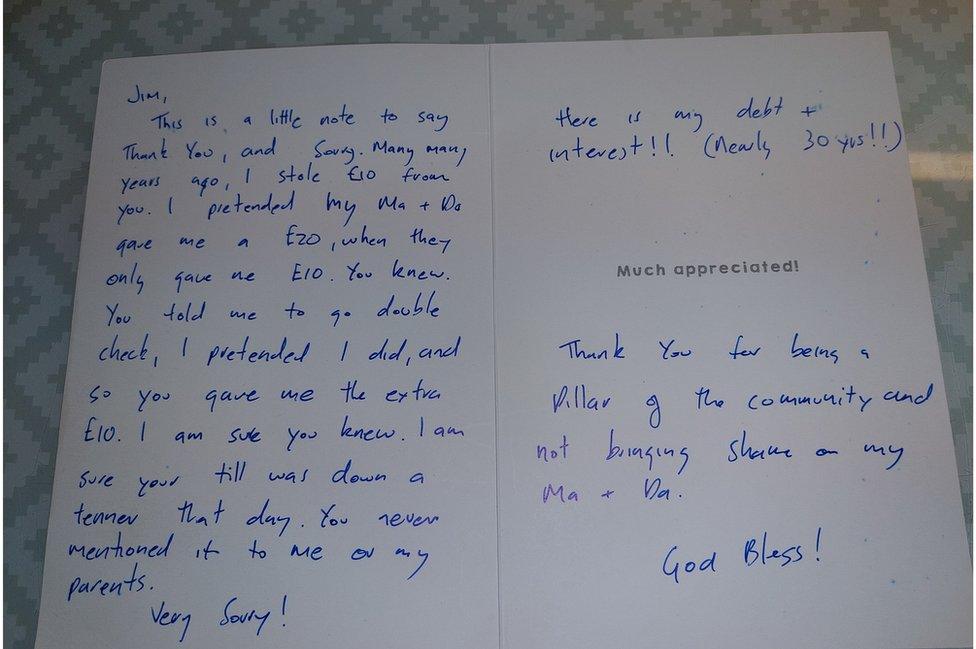 Jim,
This is a little note to say
Thank You, and Sorry. Many many
years ago, I stole £10 from
you. I pretended my Ma + Da
gave me a £20, when they
only gave me £10. You knew.
You told me to go double
check, I pretended I did, and
so you gave me the extra
£10. I am sure you knew. I am
sure your till was down a
tenner that day. You never
mentioned it to me or my
parents.
Very Sorry!
Here is my debt +
interest!! (Nearly 30 yrs!!)
Much appreciated!
Thank You for being a
Pillar of the community and
not bringing shame on my
Ma + Da.
God Bless!